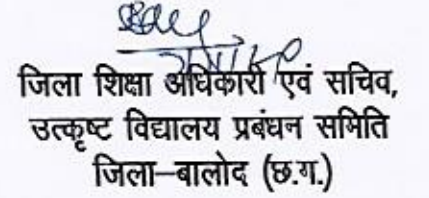 जिला शिक्षा अधिकारी एवं सचिव,
उत्कृष्ट विद्यालय प्रबंधन समिति
जिला–बालोद (छ.ग.)